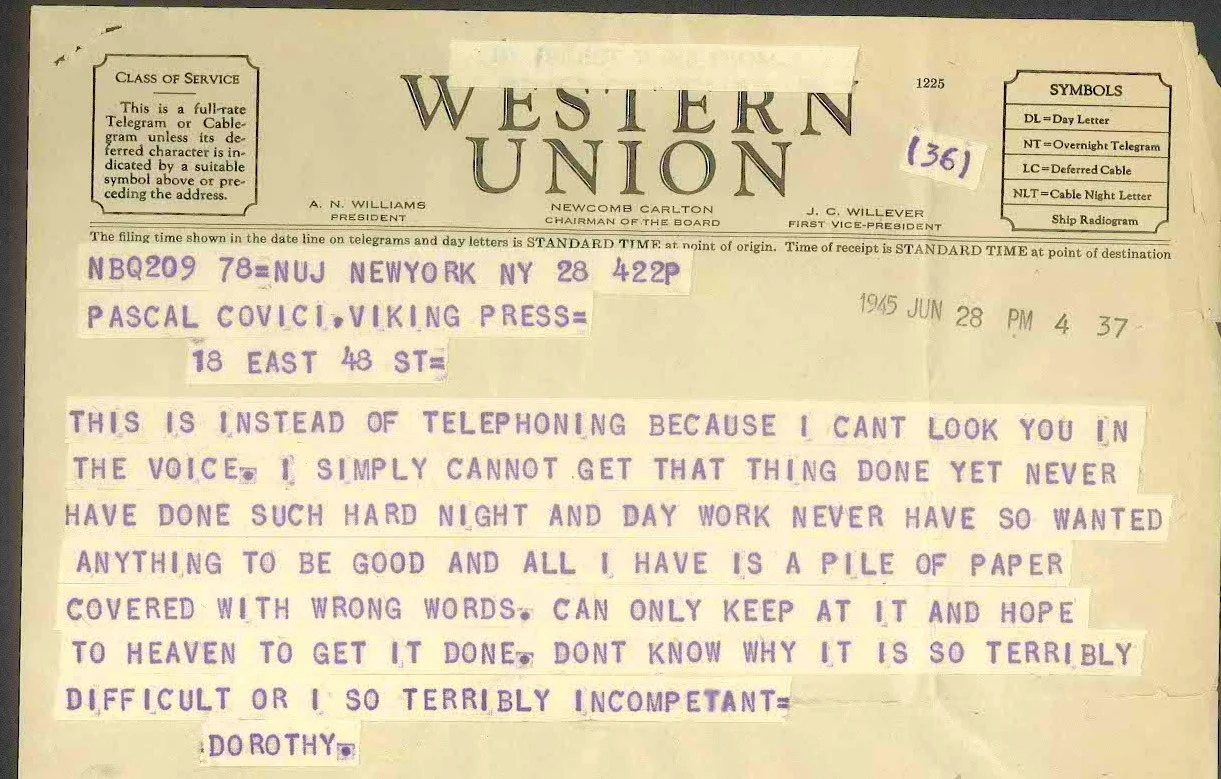 CLASS OF SERVICE
This is a full-rate
Telegram or Cable-
gram unless its de-
ferred character is in-
dicated by a suitable
symbol above or pre-
ceding the address.
WESTERN
UNION
1225
(36)
A. N. WILLIAMS
PRESIDENT
NEWCOMB CARLTON
CHAIRMAN OF THE BOARD
J. C. WILLEVER
FIRST VICE-PRESIDENT
SYMBOLS
DL=Day Letter
NT=Overnight Telegram
LC=Deferred Cable
NLT=Cable Night Letter
Ship Radiogram
The filing time shown in the date line on telegrams and day letters is STANDARD TIME at point of origin. Time of receipt is STANDARD TIME at point of destination
NBQ209 78=NUJ NEWYORK NY 28 422P
PASCAL COVICI,VIKING PRESS=
1945 JUN 28 PM 4 37
18 EAST 48 ST=
THIS IS INSTEAD OF TELEPHONING BECAUSE I CANT LOOK YOU IN
THE VOICE. I SIMPLY CANNOT GET THAT THING DONE YET NEVER
HAVE DONE SUCH HARD NIGHT AND DAY WORK NEVER HAVE SO WANTED
ANYTHING TO BE GOOD AND ALL I HAVE IS A PILE OF PAPER
COVERED WITH WRONG WORDS. CAN ONLY KEEP AT IT AND HOPE
TO HEAVEN TO GET IT DONE. DONT KNOW WHY IT IS SO TERRIBLY
DIFFICULT OR I SO TERRIBLY INCOMPETANT=
DOROTHY.